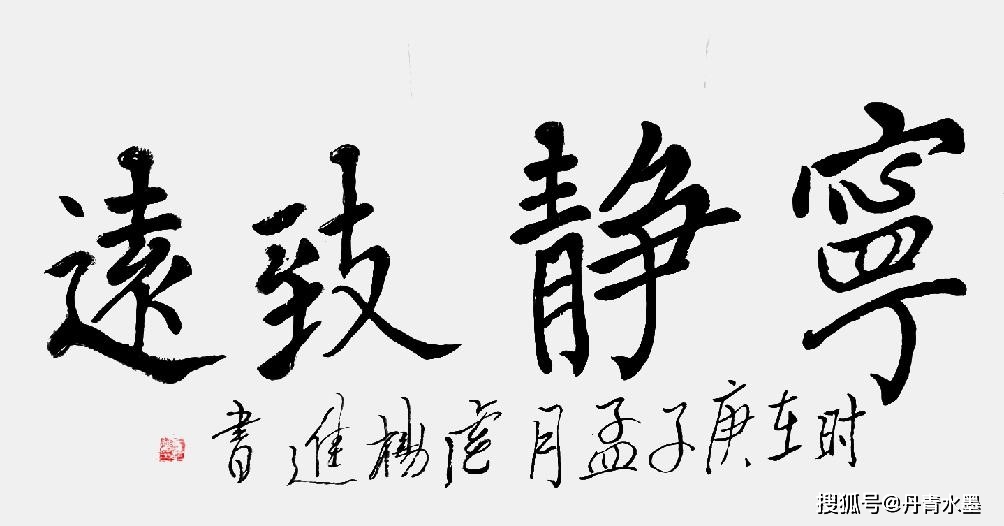 寧静致遠
时在庚子孟月楊進書
搜狐号@丹青水墨